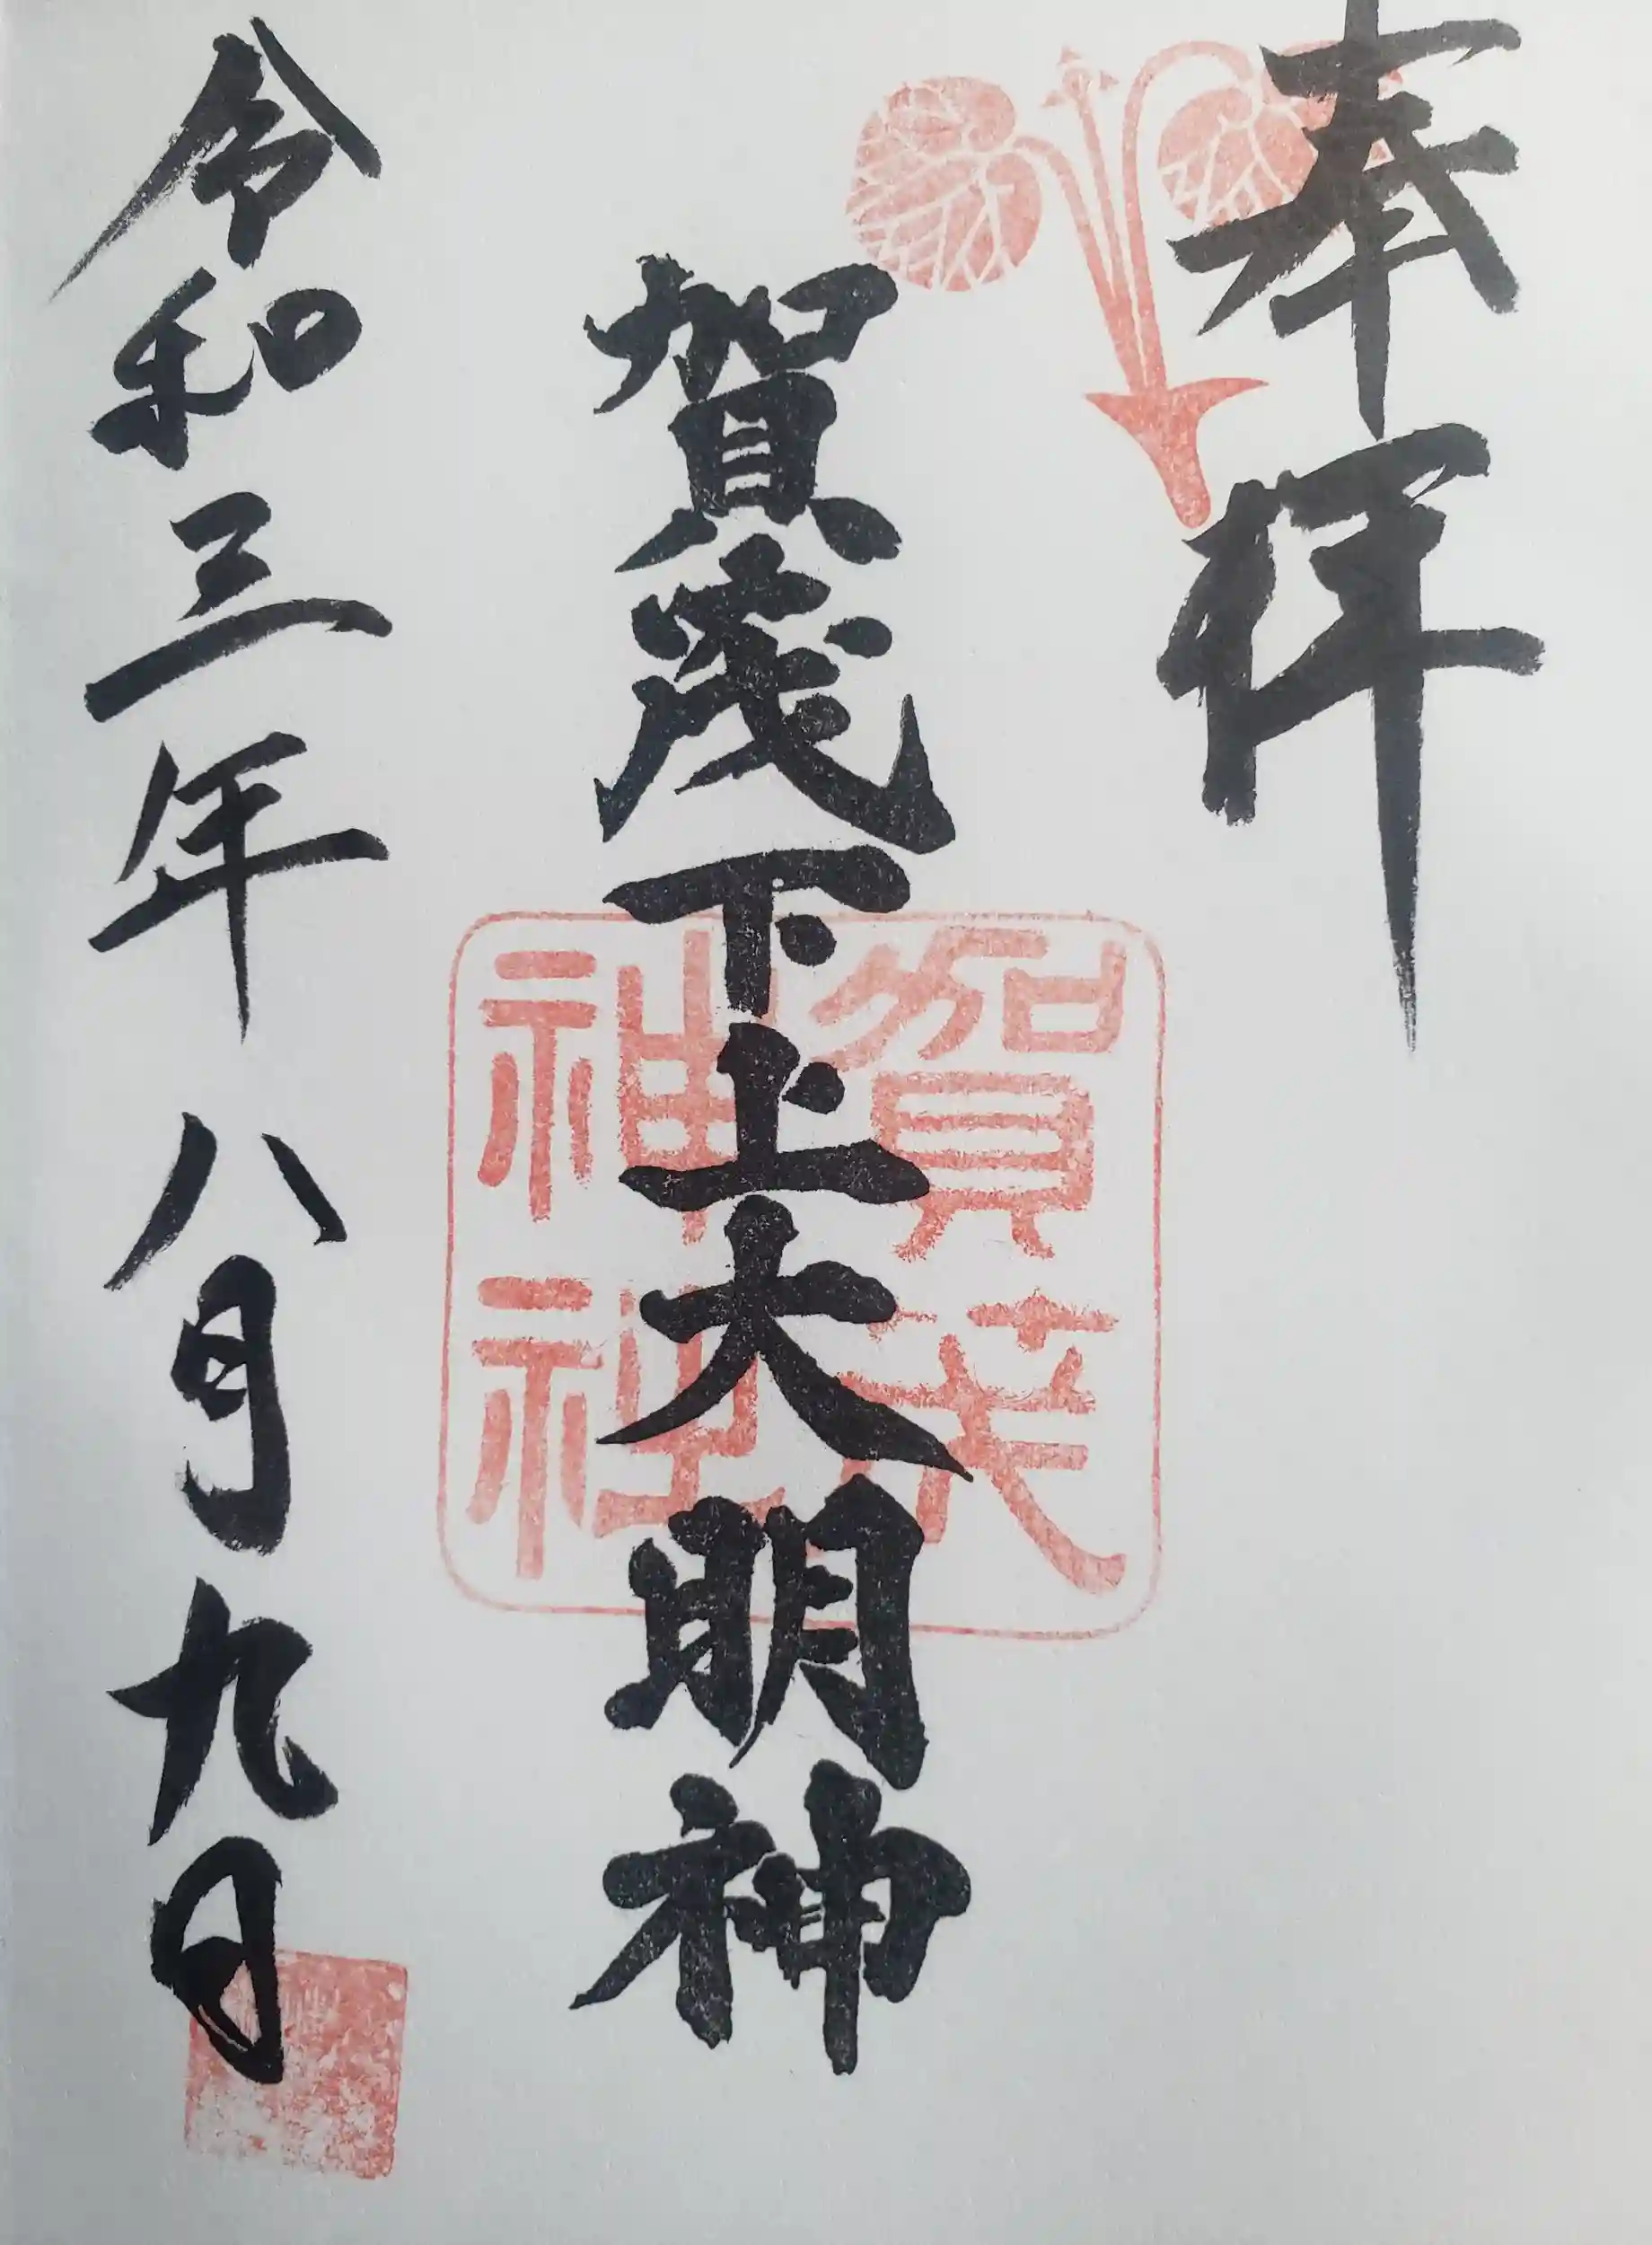 奉拝
賀茂下上大明神
賀茂
神社
令和三年 八月九日